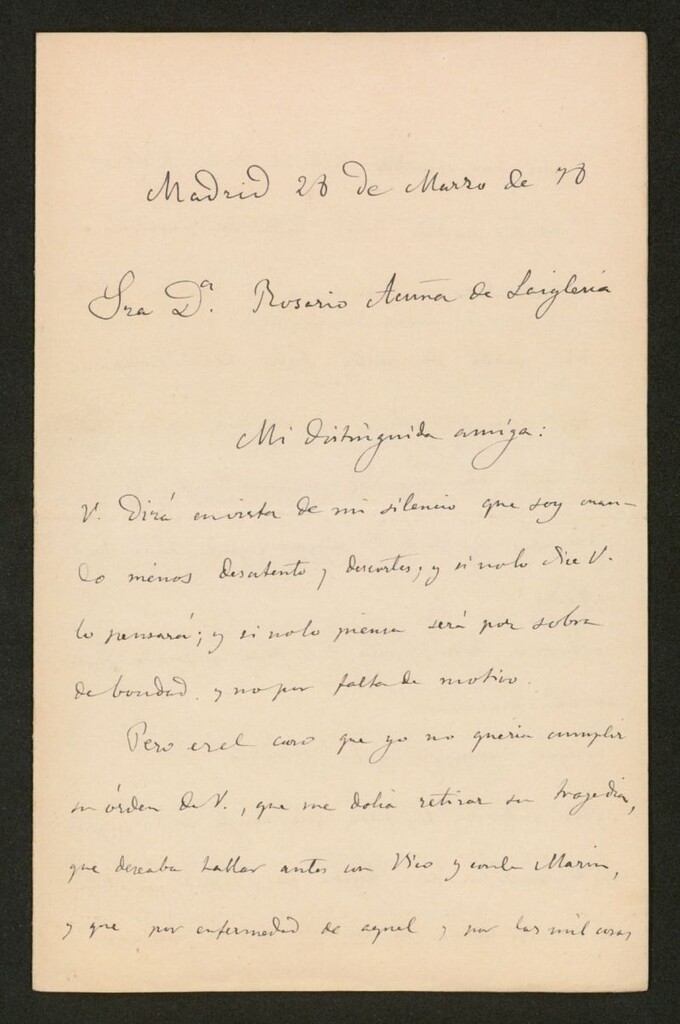 Madrid 28 de Marzo de 78
Sra Dª. Rosario Acuña de Laiglesia
Mi distinguida amiga:
V. dirá en vista de mi silencio que soy cuan-
do ménos desatento y descortes; y si no lo dice V.
lo pensará; y si no lo piensa será por sobra
de bondad y no por falta de motivo.
Pero es el caso que yo no queria cumplir
su órden de V., que me dolia retirar su tragedia,
que deseaba hablar antes con Vico y con la Marin,
y que por enfermedad de aquel y por las mil cosas